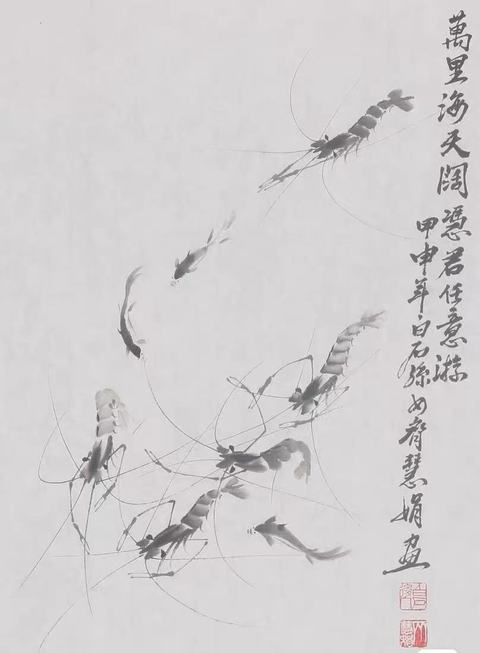 萬里海天闊憑君任意游
甲申年白石孫女齊慧娟画